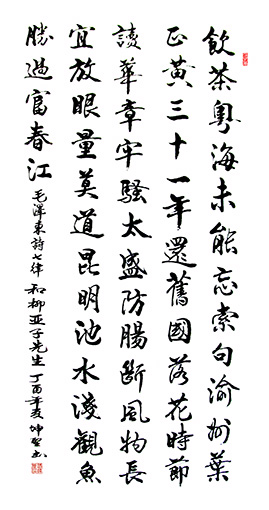 飲茶粵海未能忘索句渝州葉
正黃三十一年還舊國落花時節
讀華章牢騷太盛防腸斷風物長
宜放眼量莫道昆明池水淺觀魚
勝過富春江
毛澤東詩七律和柳亚子先生丁酉年夏坤